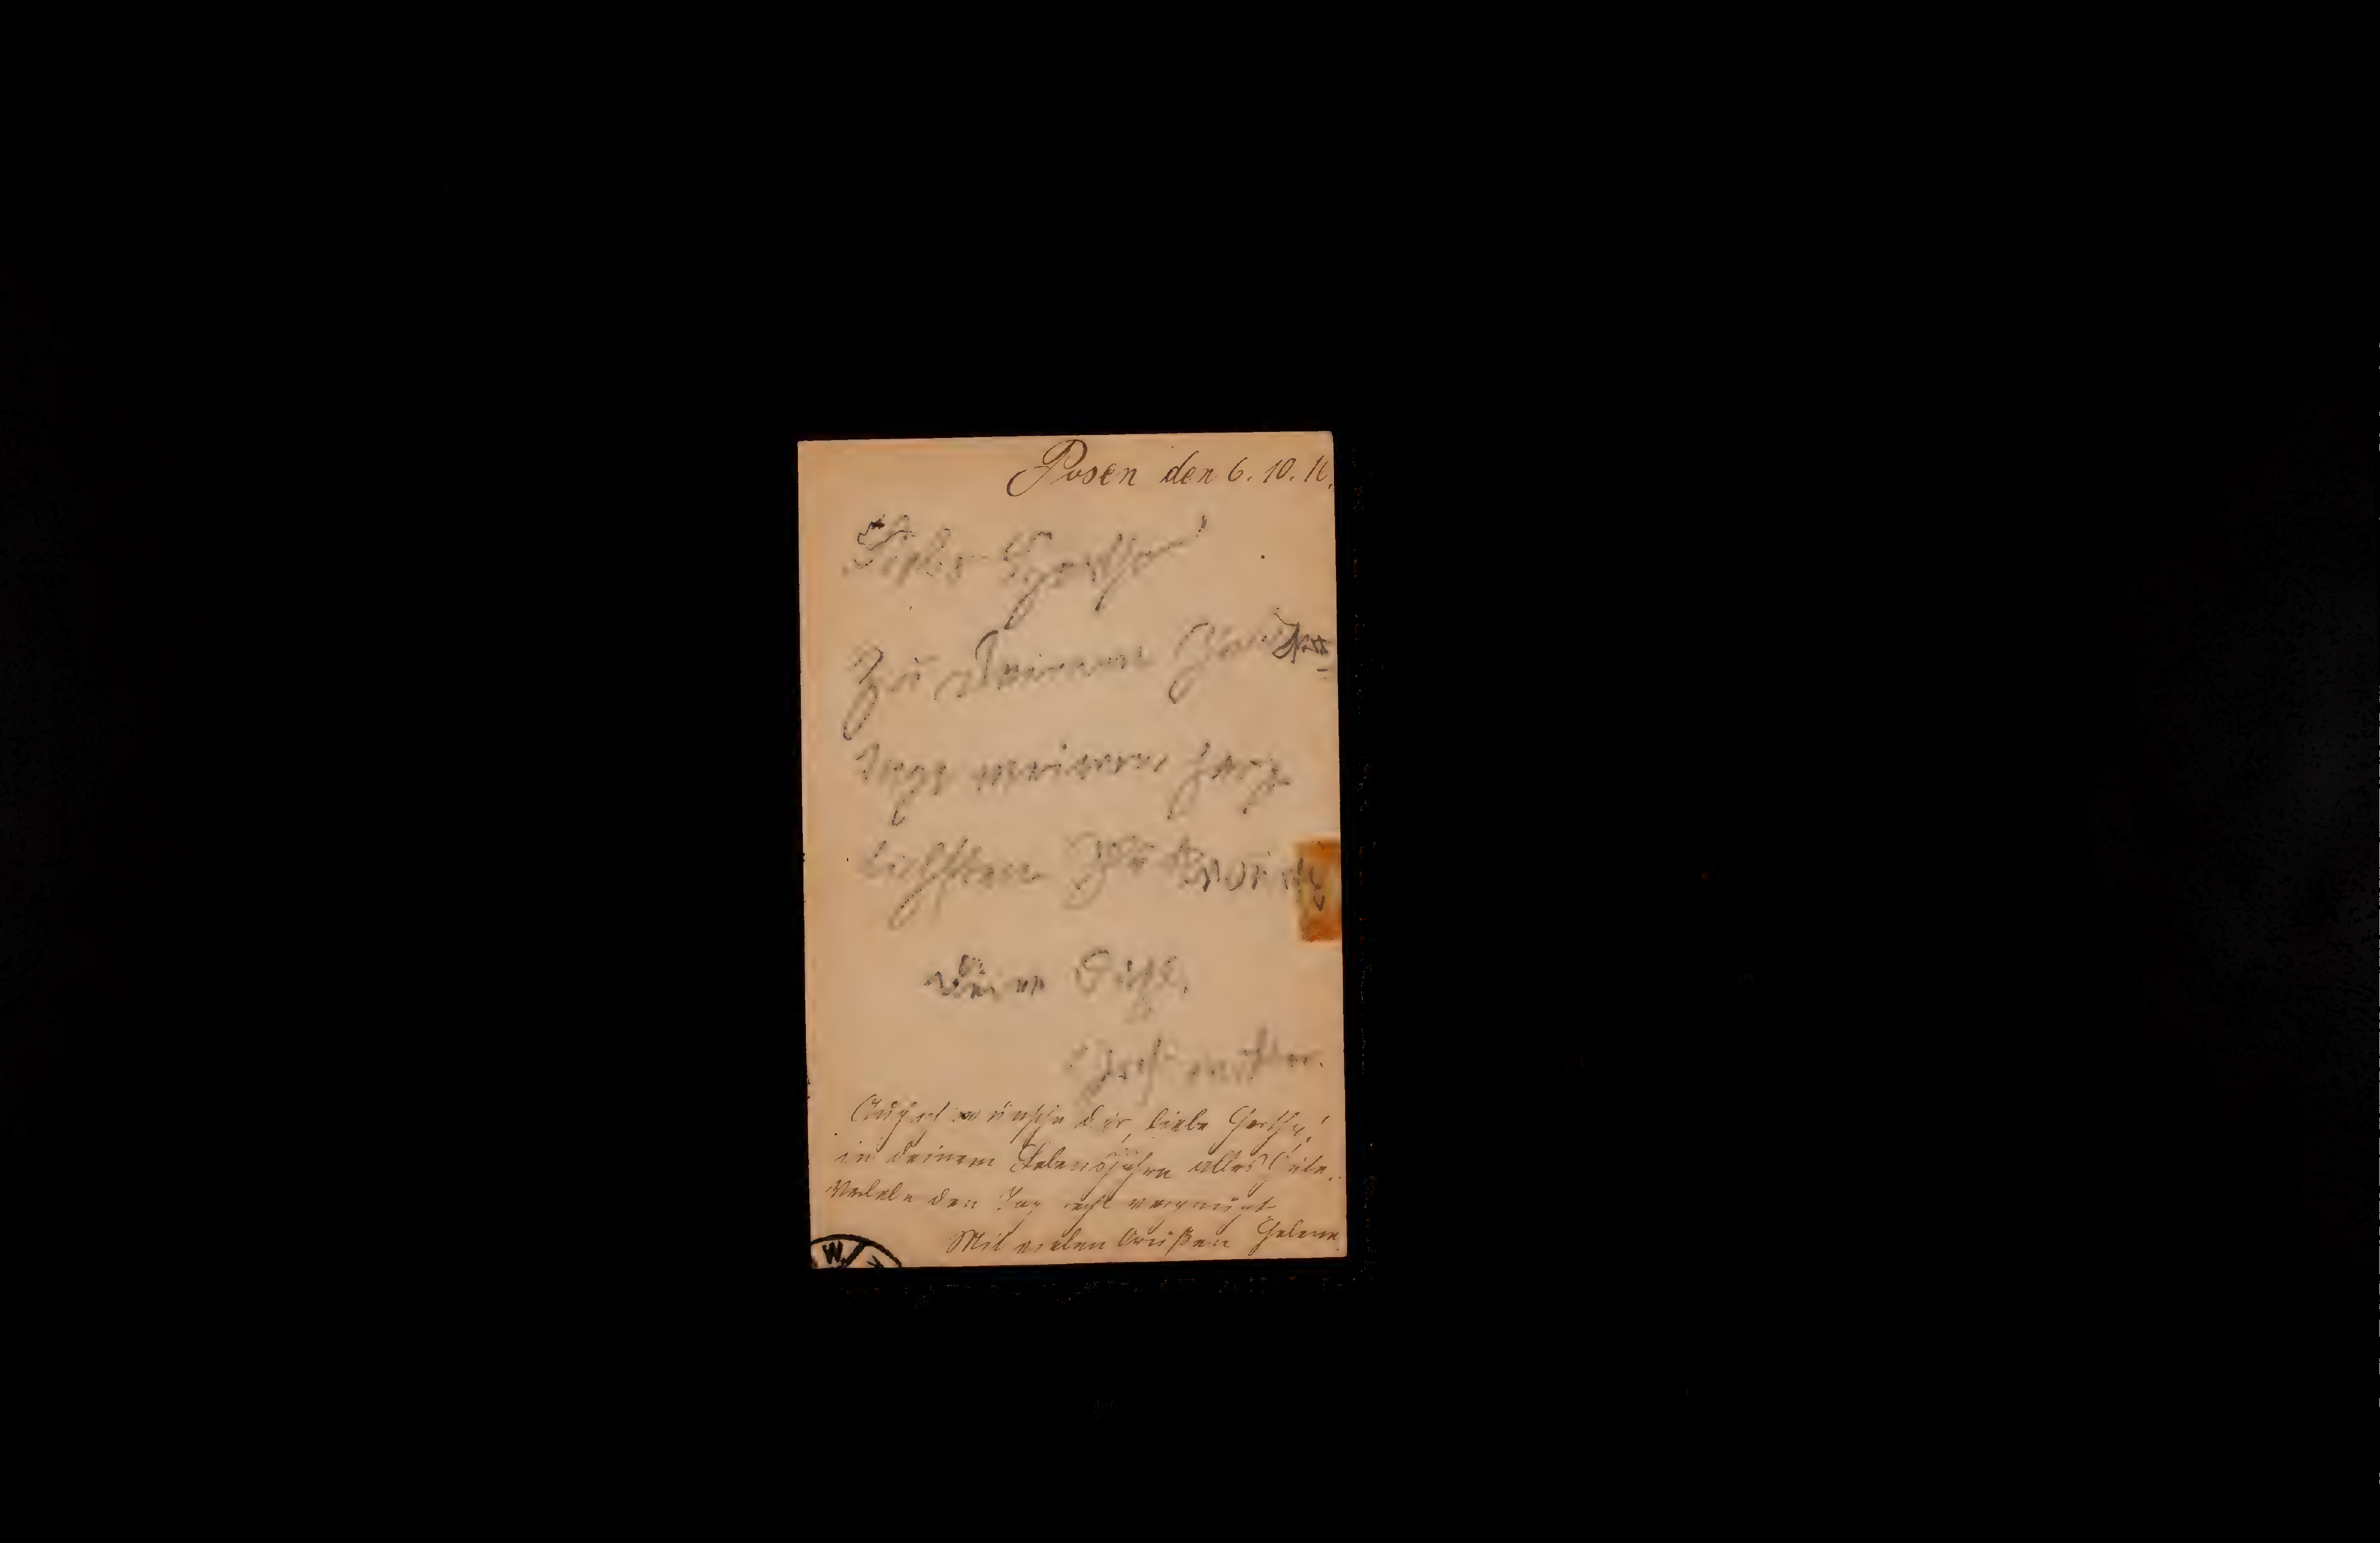 Posen den 6. 10. 16.
Liebe Hertha!
Zu Deinem Geburts
tage meinen herz
lichsten Glückwunsch
Deine
Großmutter.
Auch ich wünsche dir, liebe Hertha!
in deinem Lebensjahre alles Gute.
Verlebe den Tag recht vergnügt
Mit vielen Grüßen Helene
W